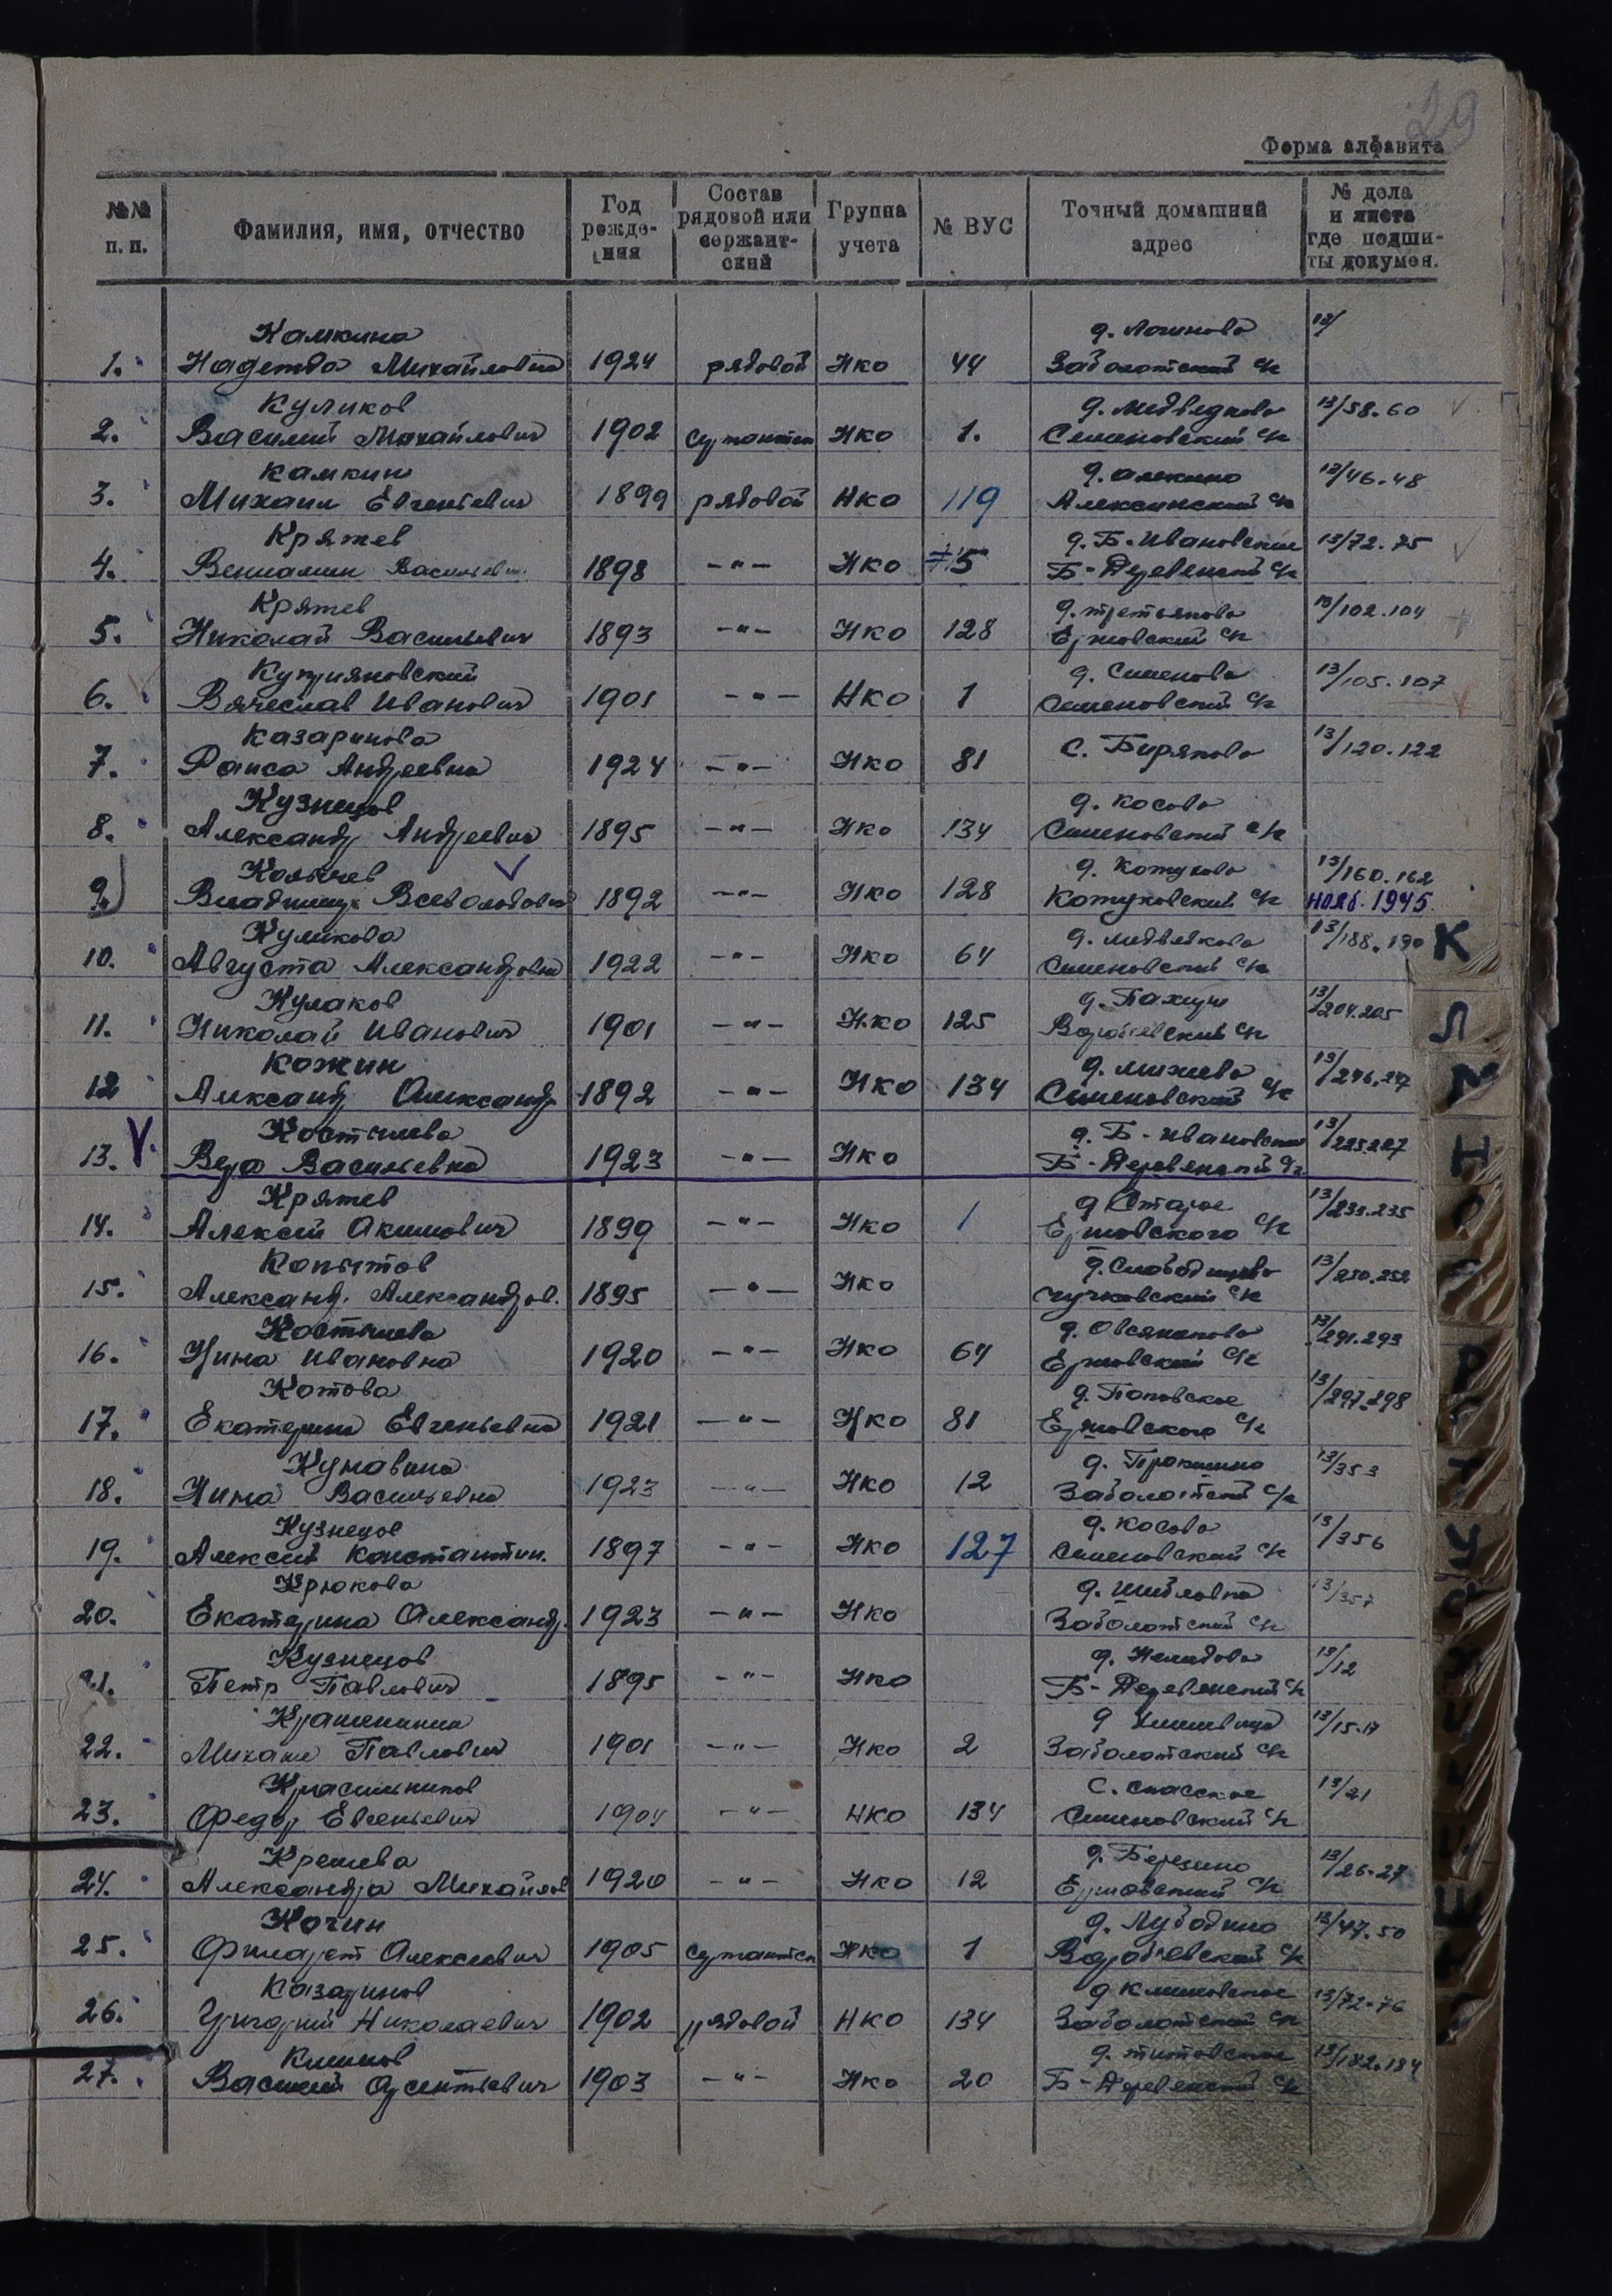 29
Форма алфавита
№№ п. п. Фамилия, имя, отчество Год рожде-ния Состав рядовой или сержант-ский Группа учета № ВУС Точный домашний адрес № дела и листа где подши-ты докумен.
Камкина д. Логиново 13/
1. Надежда Михайловна 1924 рядовой НКО 44 Заболотский с/с
Куликов д. Медведково 13/58.60
2. Василий Михайлович 1902 НКО 1. Семеновский с/с
Камкин д. Алекино 13/46.48
3. Михаил Евгеньевич 1899 рядовой НКО 119 Алексинский с/с
Кряжев д. Б-Ивановское 13/72.75
4. Вениамин Васильевич 1898 -"- НКО Б-Деревенский с/с
Кряжев д. Третьяково 13/102.104
5. Николай Васильевич 1893 -"- НКО 128 Ершовский с/с
Куприяновский д. Семеново 13/105.107
6. Вячеслав Иванович 1901 -"- НКО 1 Семеновский с/с
Казаринова 13/120.122
7. Раиса Андреевна 1924 -"- НКО 81 С. Биряково
Кузнецов д. Косово
8. Александр Андреевич 1895 -"- НКО 134 Семеновский с/с
Колычев д. Кожухово 13/160.162
9. Владимир Всеволодович 1892 -"- НКО 128 Кожуховский с/с нояб. 1945
Куликова д. Медведково 13/188.190
10. Августа Александровна 1922 -"- НКО 64 Семеновский с/с
Кулаков 13/204.205
11. Николай Иванович 1901 -"- НКО 125 Воробьевский с/с
Кожин д. Михеево 13/246.247
12 Александр Александр 1892 -"- НКО 134 Семеновский с/с
Костылева д. Б-Ивановское 13/225.227
13. Вера Васильевна 1923 -"- НКО Б-Деревенский
Кряжев д. Старое 13/233.235
14. Алексей Акимович 1899 -"- НКО 1 Ершовского с/с
Копытов 13/250.252
15. Александр. Александров. 1895 -"- НКО Чучковский с/с
Костылева д. Овсянниково 13/291.293
16. Нина Ивановна 1920 -"- НКО 64 Ершовский с/с
Котова д. Поповское 13/297.298
17. Екатерина Евгеньевна 1921 -"- НКО 81 Ершовского с/с
Кунавина 13/353
18. Нина Васильевна 1923 -"- НКО 12 Заболотский с/с
Кузнецов д. Косово 13/356
19. Алексей Константин. 1897 -"- НКО 127 Семеновский с/с
Крюкова 13/357
20. Екатерина Александр. 1923 -"- НКО Заболотский с/с
Кузнецов д. Нелидово 13/12
21. Петр Павлович 1895 -"- НКО Б-Деревенский с/с
13/15.17
22. Михаил Павлович 1901 -"- НКО 2 Заболотский с/с
Красильников С. Спасское 13/21
23. Федор Евгеньевич 1904 -"- НКО 134 Семеновский с/с
д. Березино 13/26.27
24. Александра Михайлов 1920 -"- НКО 12 Ершовский с/с
Кочин 13/47.50
25. Филарет Алексеевич 1905 НКО 1 Воробьевский с/с
Казаринов д. Климовское 13/72.76
26. Григорий Николаевич 1902 рядовой НКО 134 Заболотский с/с
Климов д. Титовское 13/182.184
27. Василий 1903 -"- НКО 20 Б-Деревенский с/с
К
Л
М
Н
О